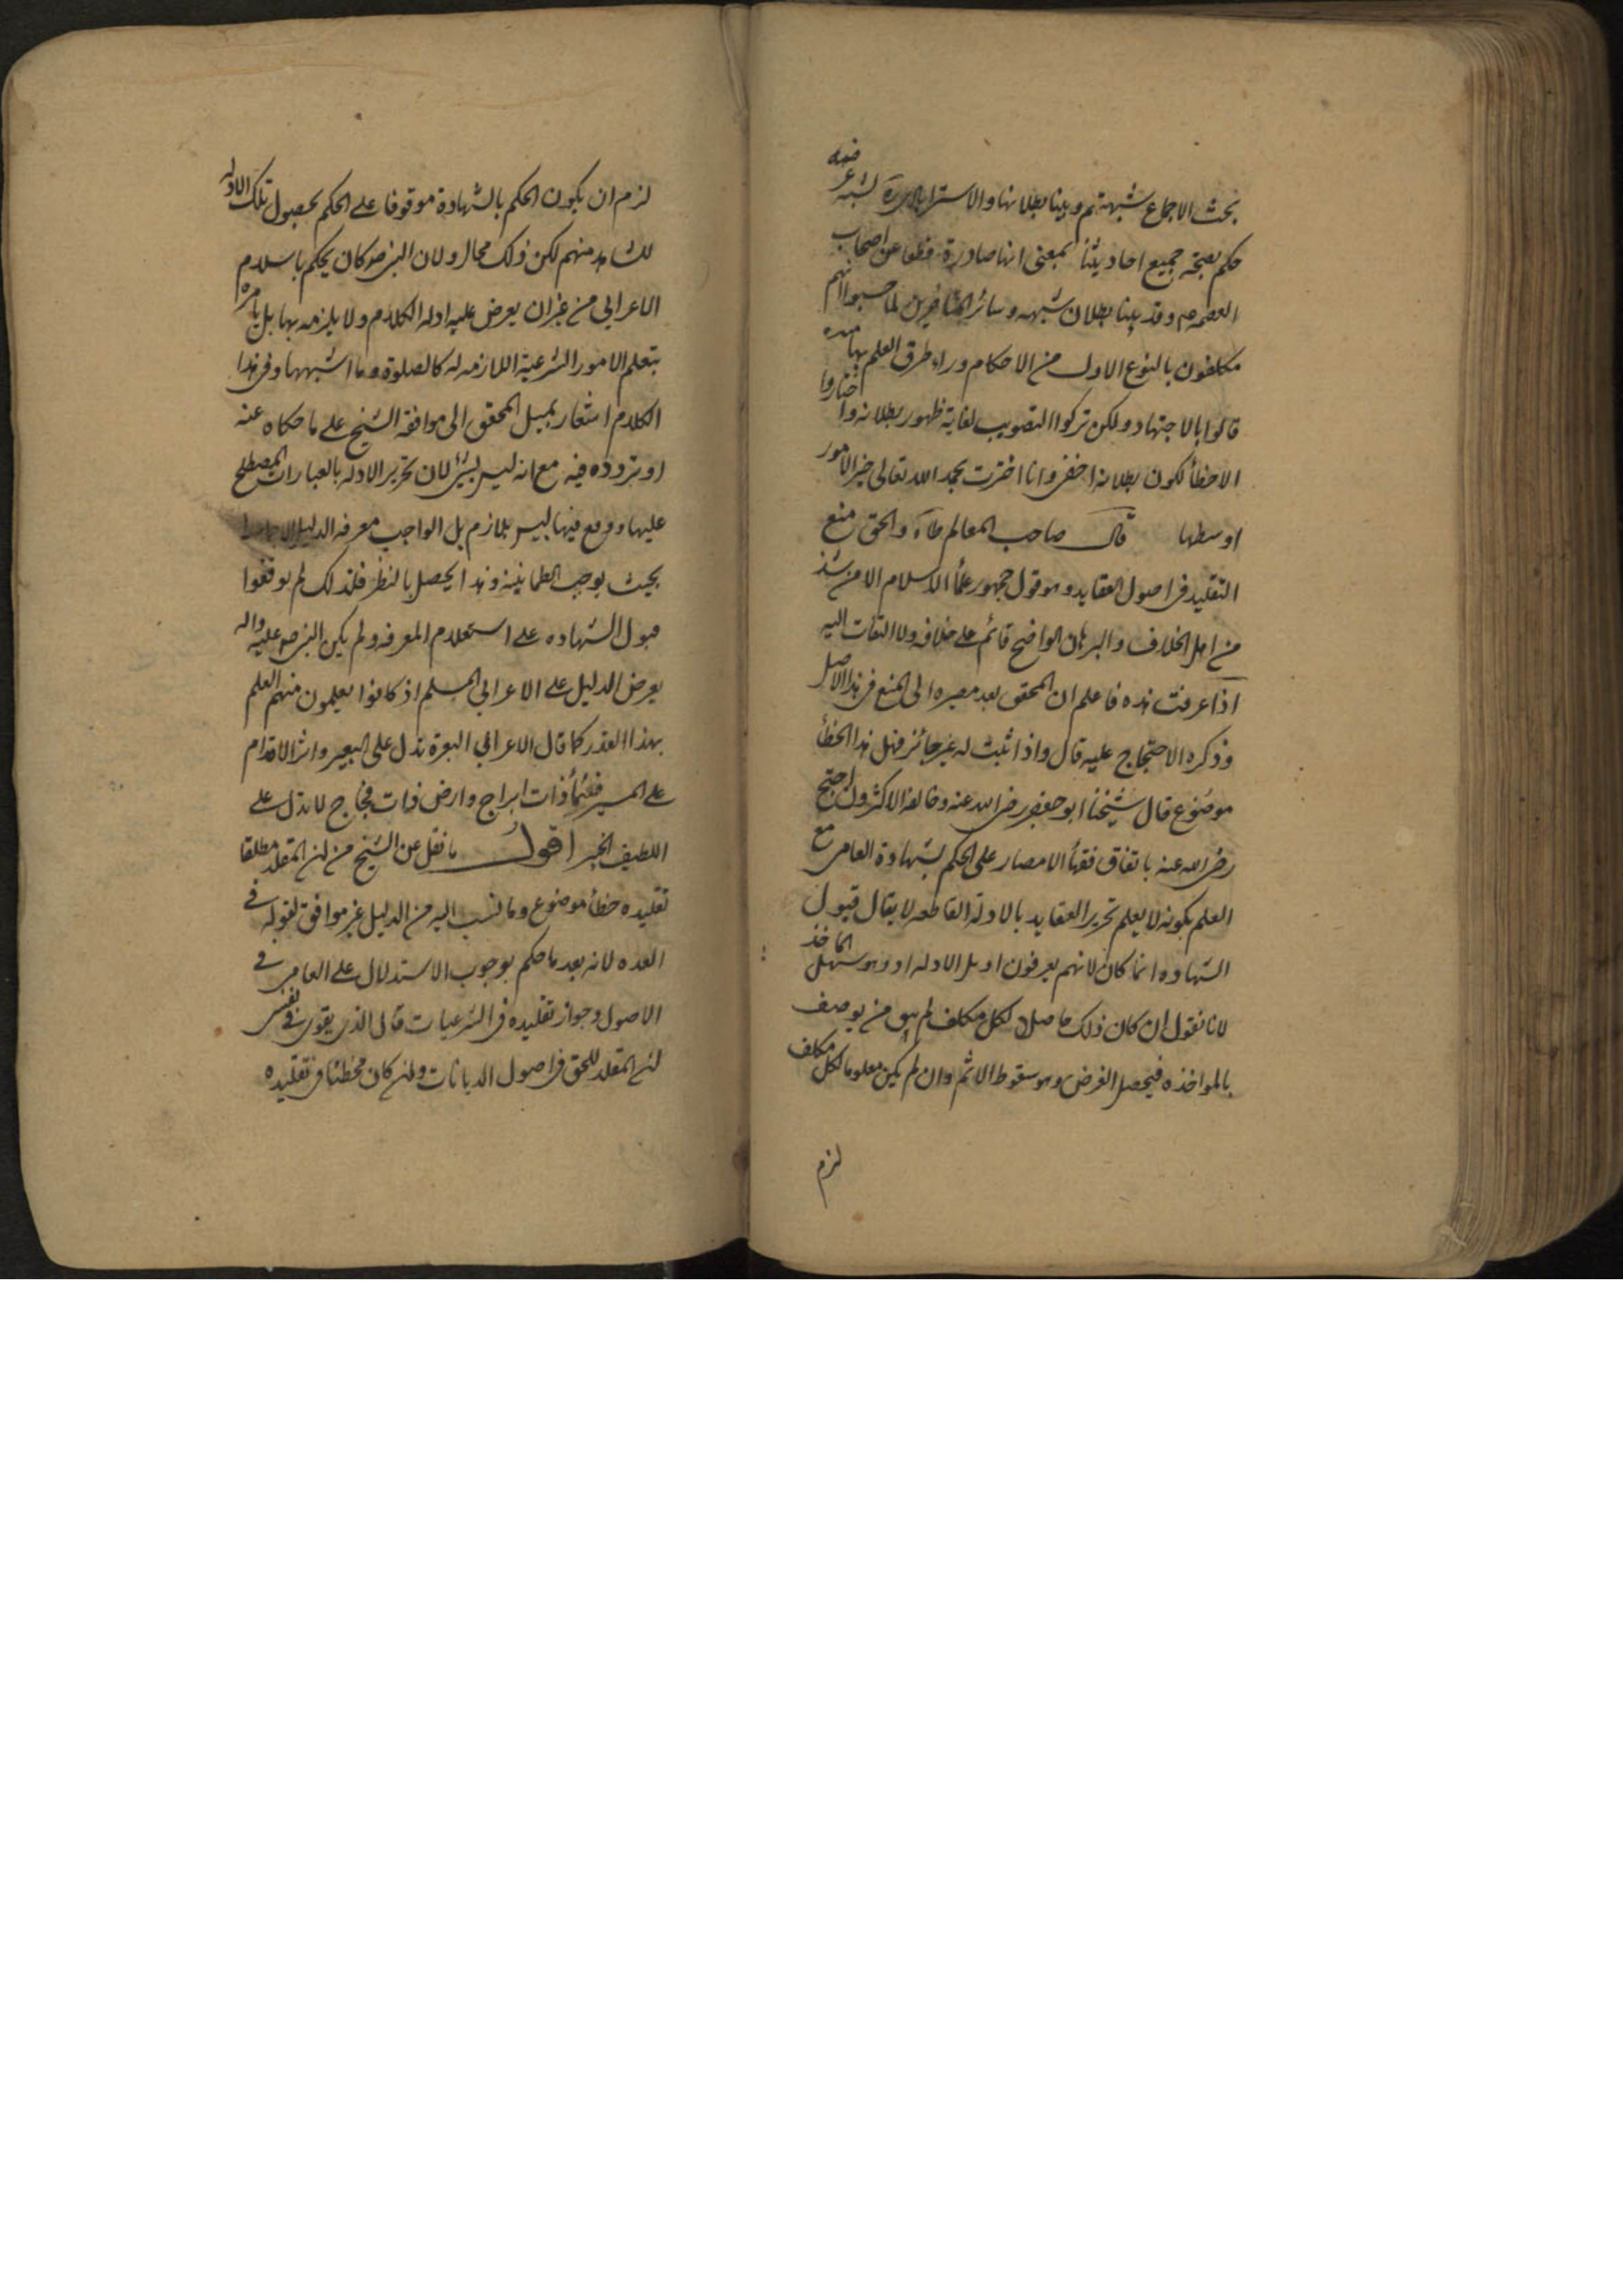 بحث الاجماع شبهتهم وبينا بطلانها والاسترابادى ره لشبه عرضه
حكم بصحة جميع احاديثنا بمعنى انها صادرة قطعا عن اصحاب
العصمه ع م وقد بينا بطلان شبهه وسائر المتاخرين لما حسبوا انهم
مكلفون بالنوع الاول من الاحكام وراء طرق العلم بها منسده
قالوا بالاجتهاد ولكن تركوا التصويب لغاية ظهور بطلانه واختاروا
الاخطأ لكون بطلانه اخفى وانا اخترت بحمد الله تعالى خير الامور
اوسطها قال صاحب المعالم طاه والحق منع
التقليد فى اصول العقايد وهو قول جمهور علمأ الاسلام الا من شذ
من اهل الخلاف والبرهان الواضح قائم على خلافه ولا التفات اليه
اذا عرفت هذه فاعلم ان المحقق بعد مصيره الى المنع فى هذا الاصل
وذكره الاحتجاج عليه قال واذا ثبت انه غير جائز فهل هذا الخطأ
موضوع قال شيخنا ابو جعفر رضى الله عنه وخالفه الاكثرون احتج
رضى الله عنه باتفاق فقهأ الامصار على الحكم بشهادة العامى مع
العلم بكونه لا يعلم تحرير العقايد بالادلة القاطعه لا يقال قبول
الشهاده انما كان لانهم يعرفون اوايل الادله او وهو سهل الماخذ
لانا نقول ان كان ذلك حاصلا لكل مكلف لم يبق من يوصف
بالمواخذه فيحصل الغرض وهو سقوط الاثم وان لم يكن معلوما لكل مكلف
لزم
لزم ان يكون الحكم بالشهادة موقوفا على الحكم بحصول تلك الادله
للشاهد منهم لكن ذلك محال ولان النبى ص كان يحكم باسلام
الاعرابى من غير ان يعرض عليه ادله الكلام ولا يلزمه بها بل يامره
بتعلم الامور الشرعية اللازمه له كالصلوة وما اشبهها وفى هذا
الكلام اشعار بميل المحقق الى موافقه الشيخ على ما حكاه عنه
او تردده فيه مع انه ليس بشئ لان تحرير الادله بالعبارات المصطلح
عليها ودفع فيها ليس بلازم بل الواجب معرفه الدليل
بحيث يوجب الطمانينه وهذا يحصل بالنظر فلذلك لم يوقفوا
قبول الشهاده على استعلام المعرفه ولم يكن النبى ص عليه واله
يعرض الدليل على الاعرابى المسلم اذ كانوا يعلمون منهم العلم
بهذا القدر كما قال الاعرابي البعرة تدل على البعير واثر الاقدام
على المسير فسمأ ذات ابراج وارض ذات فجاج لا تدل على
اللطيف الخبير اقول ما نقل عن الشيخ من ان المقلد مطلقا
تقليده خطأ موضوع وما نسب اليه من الدليل غير موافق لقوله فى
العده لانه بعد ما حكم بوجوب الاستدلال على العامى فى
الاصول وجواز تقليده فى الشرعيات قال الذى يقوى فى نفسى
ان المقلد للحق فى اصول الديانات وان كان مخطئا فى تقليده